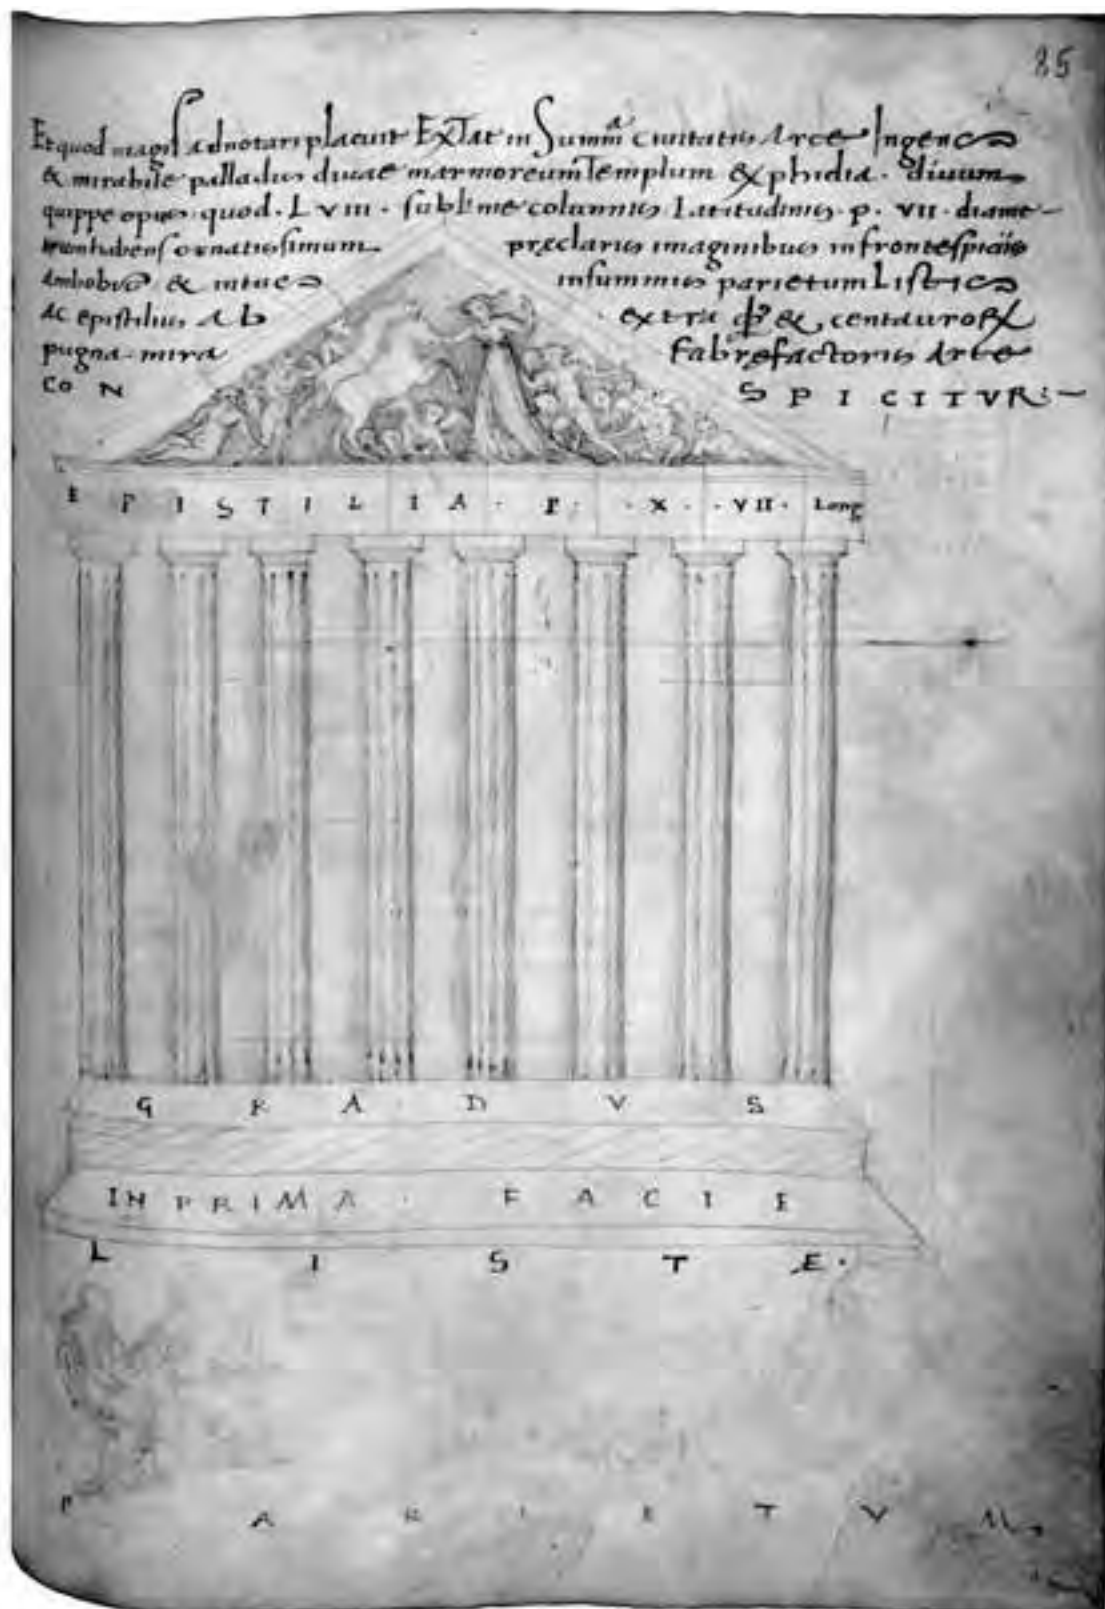 85
Et quod magis adnotari placuit ExTat in Summa civitatis Arce Ingens
& mirabile palladis divae marmoreum Templum & phidia · divum
quippe opus · quod · L VIII · sublime columnis Latitudinis · p · VII · diame-
trum habens ornatissimum praeclaris imaginibus in frontespiciis
Ambobus & intus in summis parietum Listis
Ac epistiliis Ab extra & centauror
pugna mira Fabrefactoris Arte
CON SPICITVR:~
EPISTILIA · P · · X · · VII · Long
GRADVS
IN PRIMA · FACIE
LISTE ·
PARIETVM